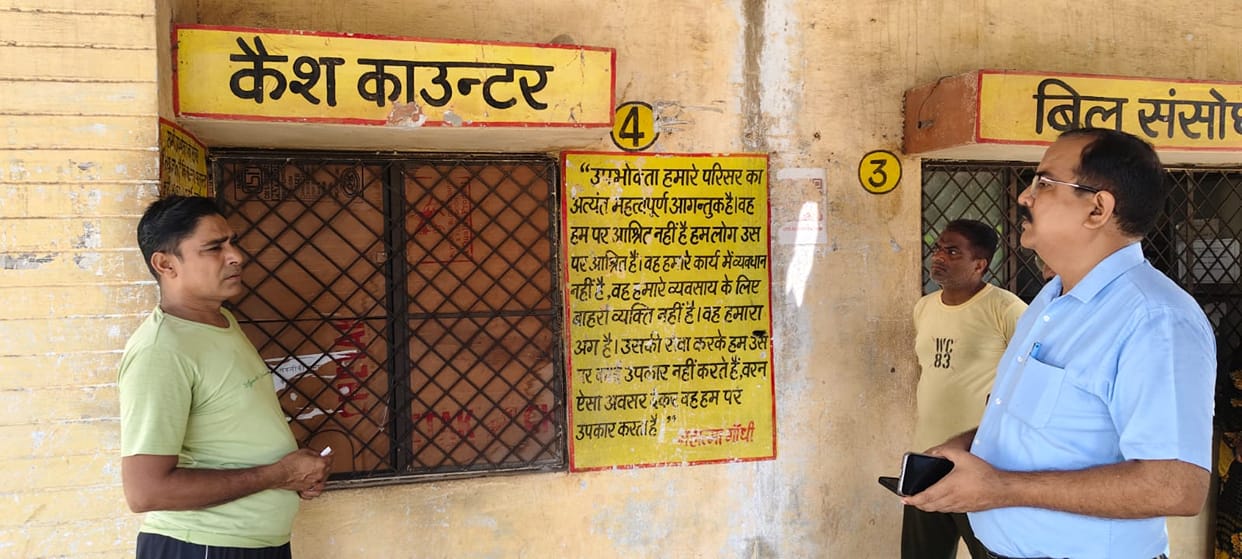 कैश काउन्टर
4
"उपभोक्ता हमारे परिसर का
अत्यंत महत्वपूर्ण आगन्तुक है। वह
हम पर आश्रित नहीं है हम लोग उस
पर आश्रित हैं। वह हमारे कार्य में व्यवधान
नहीं है, वह हमारे व्यवसाय के लिए
बाहरी व्यक्ति नहीं है। वह हमारा
अंग है। उसकी सेवा करके हम उस
पर उपकार नहीं करते हैं, वरन
ऐसा अवसर देकर वह हम पर
उपकार करता है"
महात्मा गाँधी
3
बिल संसोध
WC
83